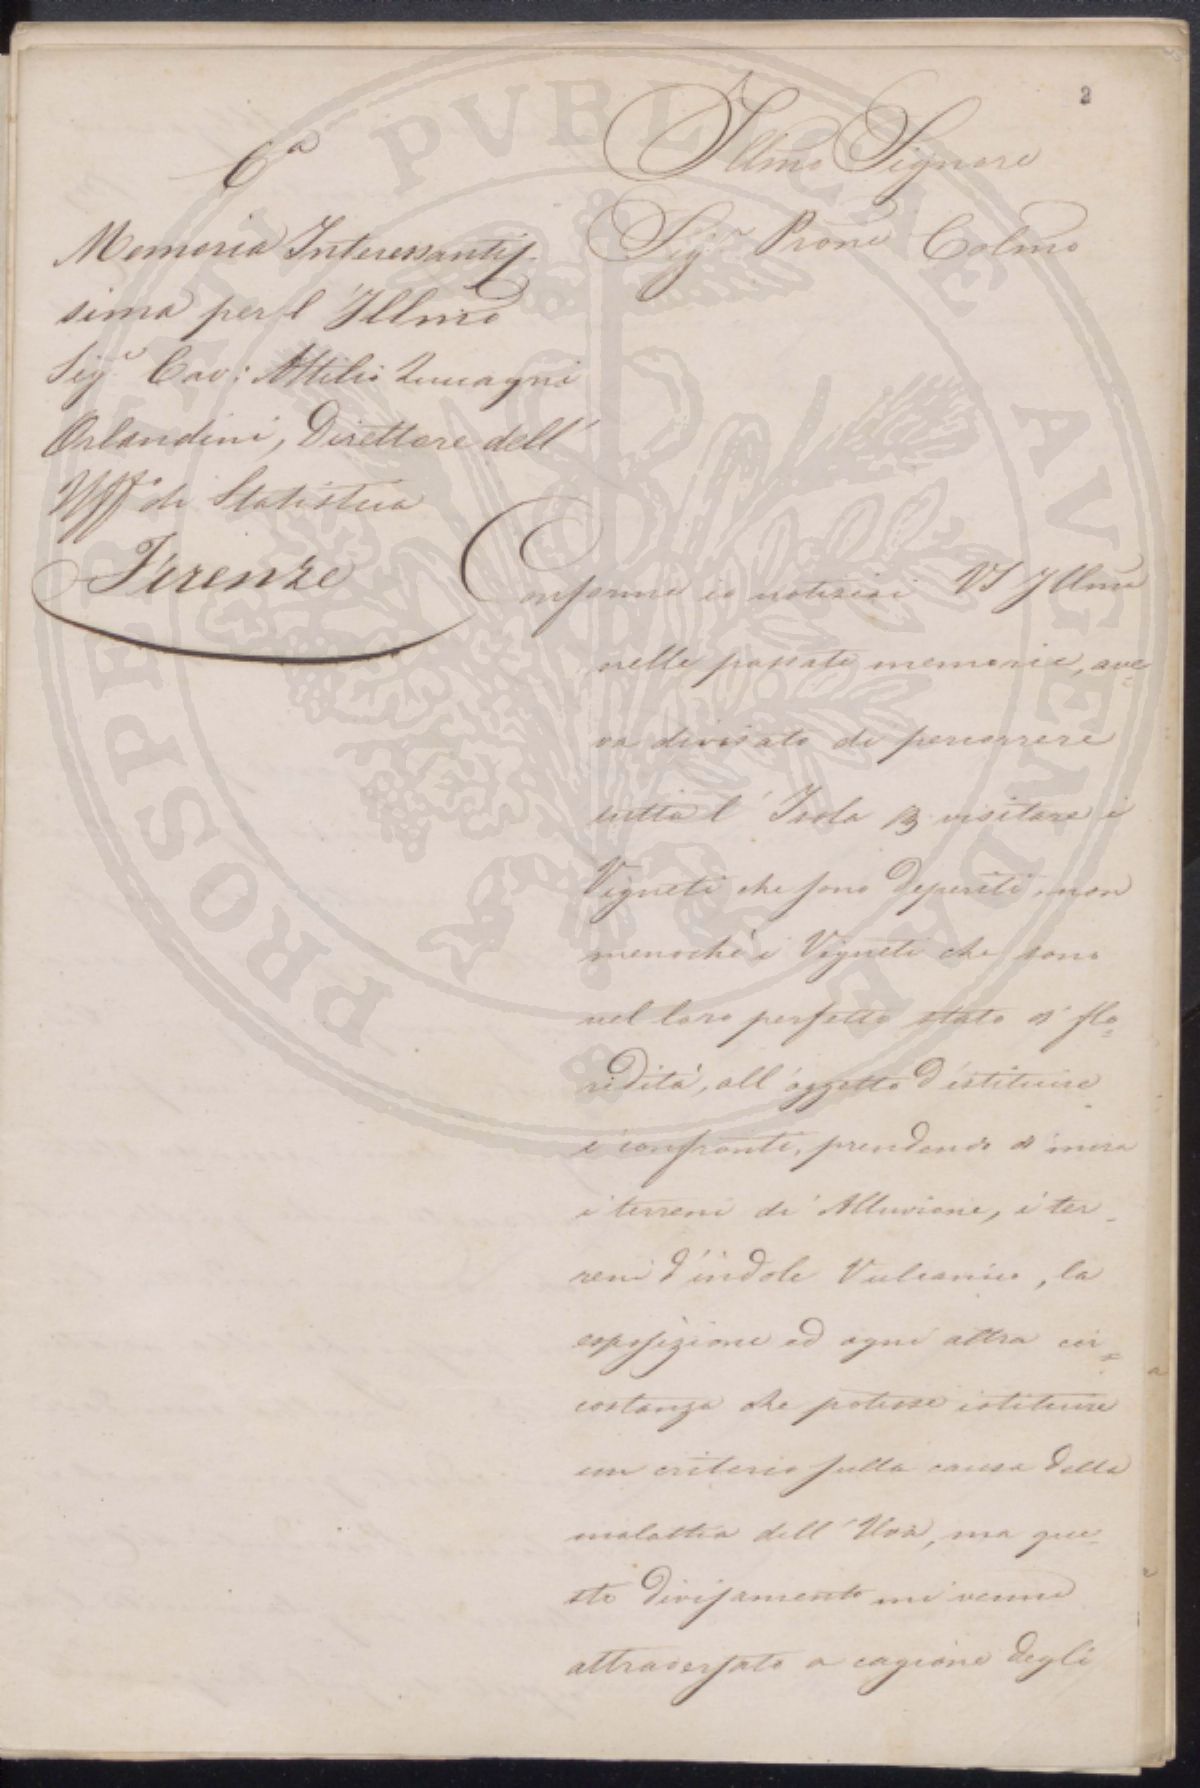 2
6ª
Memoria Interessantis=
sima per l'Illmo
Sigr Cav: Attilio Zuccagni
Orlandini, Direttore dell'
Uffo di Statistica
Firenze
Illmo Signore
Sigr Prone Colmo
Conforme io notiziai VS Illma
nelle passate memorie, ave=
va divisato di percorrere
tutta l'Isola visitare i
Vigneti che sono Deperiti non
menochè i Vigneti che sono
nel loro perfetto stato di flo=
ridità, all'oggetto D'istituire
i confronti, prendendo di mira
i terreni di Alluvione, i ter=
reni d'indole Vulcanico, la
esposizione ed ogni altra cir=
costanza che potesse istituire
un criterio sulla causa della
malattia dell'Uva, ma que=
sto Divisamento mi venne
attraversato a cagione Degli
PROSPERITATI PVBLICAE AVGENDAE